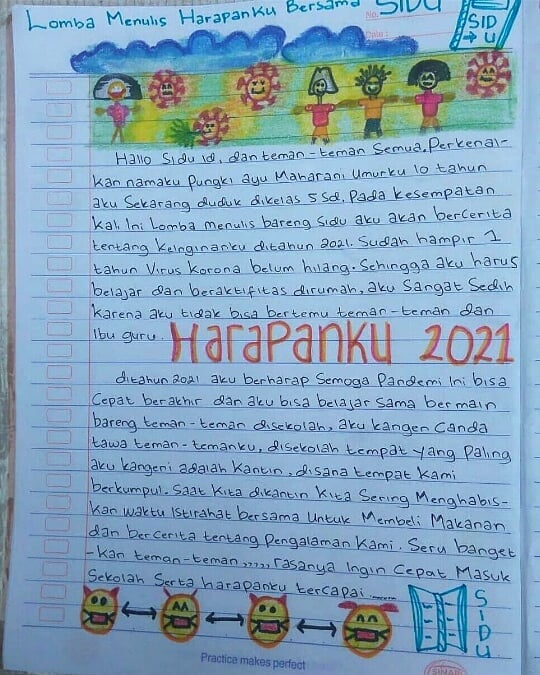 Lomba Menulis HarapanKu Bersama SIDU
No.
Date :
SID
→ U
Hallo Sidu id, dan teman-teman Semua. Perkenal-
kan namaku Pungki ayu Maharani Umurku 10 tahun
aku Sekarang duduk dikelas 5 Sd. Pada kesempatan
kali ini Lomba menulis bareng Sidu aku akan bercerita
tentang keinginanku ditahun 2021. Sudah hampir 1
tahun Virus korona belum hilang. Sehingga aku harus
belajar dan beraktifitas dirumah, aku Sangat Sedih
karena aku tidak bisa bertemu teman-teman dan
Ibu guru.
HaraPanKu 2021
ditahun 2021 aku berharap Semoga Pandemi ini bisa
Cepat berakhir dan aku bisa belajar Sama bermain
bareng teman-teman disekolah, aku kangen Canda
tawa teman-temanku, disekolah tempat yang Paling
aku kangeni adalah Kantin, disana tempat Kami
berkumpul. Saat Kita dikantin Kita Sering Menghabis-
kan waktu Istirahat bersama Untuk Membeli Makanan
dan bercerita tentang Pengalaman Kami. Seru banget
-kan teman-teman ,,,,, rasanya Ingin Cepat Masuk
Sekolah Serta harapanku tercapai ......
S
I
D
U
Practice makes perfect
SINAR